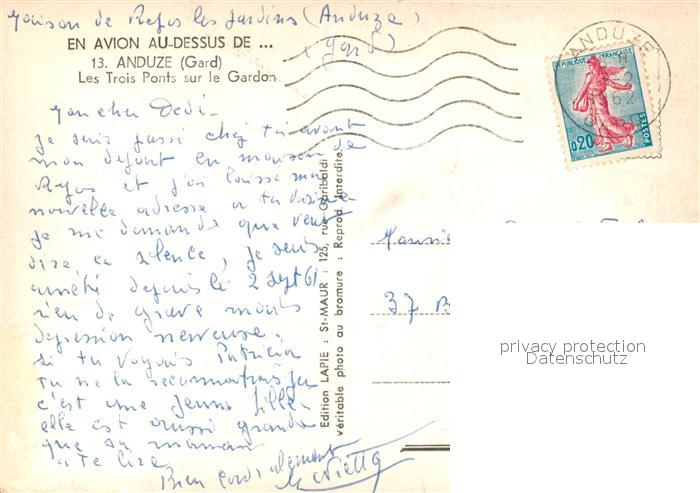 Maison de Repos les Jardins (Anduze)
(Gard)
EN AVION AU-DESSUS DE ...
13. ANDUZE (Gard)
Les Trois Ponts sur le Gardon
Mon cher Dédé.
Je suis passé chez toi avant
mon départ en maison de
Repos et j'ai laissé ma
nouvelle adresse a ta
je me demande que veut
dire ce silence, je suis
arrêté depuis le 2 sept 61
rien de grave mais
depression nerveuse.
Si tu voyais Patricia
tu ne la reconnaitrais pas
c'est une jeune fille
elle est aussi grande
que sa maman
a te lire
Bien cordialement
Edition LAPIE : St-MAUR : 125, rue Garibaldi
véritable photo au bromure : Reprod. Interdite
ANDUZE
62
REPUBLIQUE FRANÇAISE
0,20
POSTES
Monsieur
37 B
privacy protection
Datenschutz